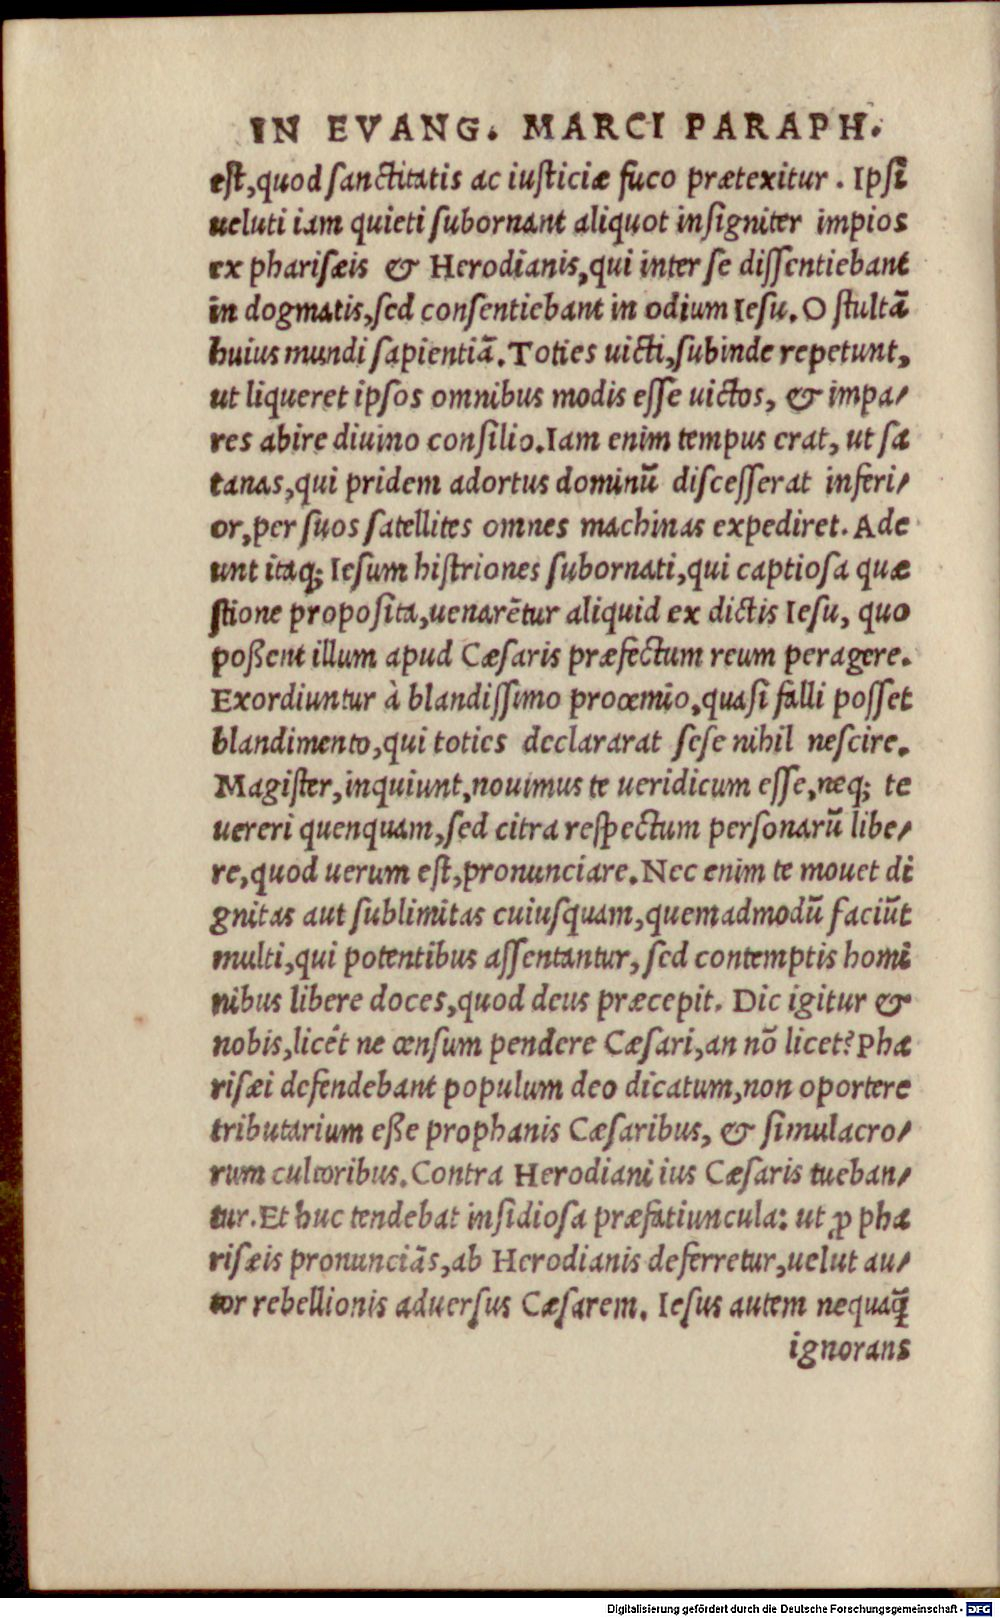 IN EVANG. MARCI PARAPH.
est, quod sanctitatis ac iusticiæ fuco prætexitur. Ipsi
ueluti iam quieti subornant aliquot insigniter impios
ex pharisæis & Herodianis, qui inter se dissentiebant
in dogmatis, sed consentiebant in odium Iesu. O stultā
huius mundi sapientiā. Toties uicti, subinde repetunt,
ut liqueret ipsos omnibus modis esse uictos, & impa/
res abire diuino consilio. Iam enim tempus erat, ut sa
tanas, qui pridem adortus dominū discesserat inferi/
or, per suos satellites omnes machinas expediret. Ade
unt itaq; Iesum histriones subornati, qui captiosa quæ
stione proposita, uenarētur aliquid ex dictis Iesu, quo
poßent illum apud Cæsaris præfectum reum peragere.
Exordiuntur à blandissimo proœmio, quasi falli posset
blandimento, qui toties declararat sese nihil nescire.
Magister, inquiunt, nouimus te ueridicum esse, neq; te
uereri quenquam, sed citra respectum personarū libe/
re, quod uerum est, pronunciare. Nec enim te mouet di
gnitas aut sublimitas cuiusquam, quemadmodū faciūt
multi, qui potentibus assentantur, sed contemptis homi
nibus libere doces, quod deus præcepit. Dic igitur &
nobis, licét ne censum pendere Cæsari, an nō licet? Pha
risæi defendebant populum deo dicatum, non oportere
tributarium eße prophanis Cæsaribus, & simulacro/
rum cultoribus. Contra Herodiani ius Cæsaris tueban/
tur. Et huc tendebat insidiosa præfatiuncula: ut ꝓ pha
risæis pronunciās, ab Herodianis deferretur, uelut au/
tor rebellionis aduersus Cæsarem. Iesus autem nequaq̄
ignorans
Digitalisierung gefördert durch die Deutsche Forschungsgemeinschaft - DFG